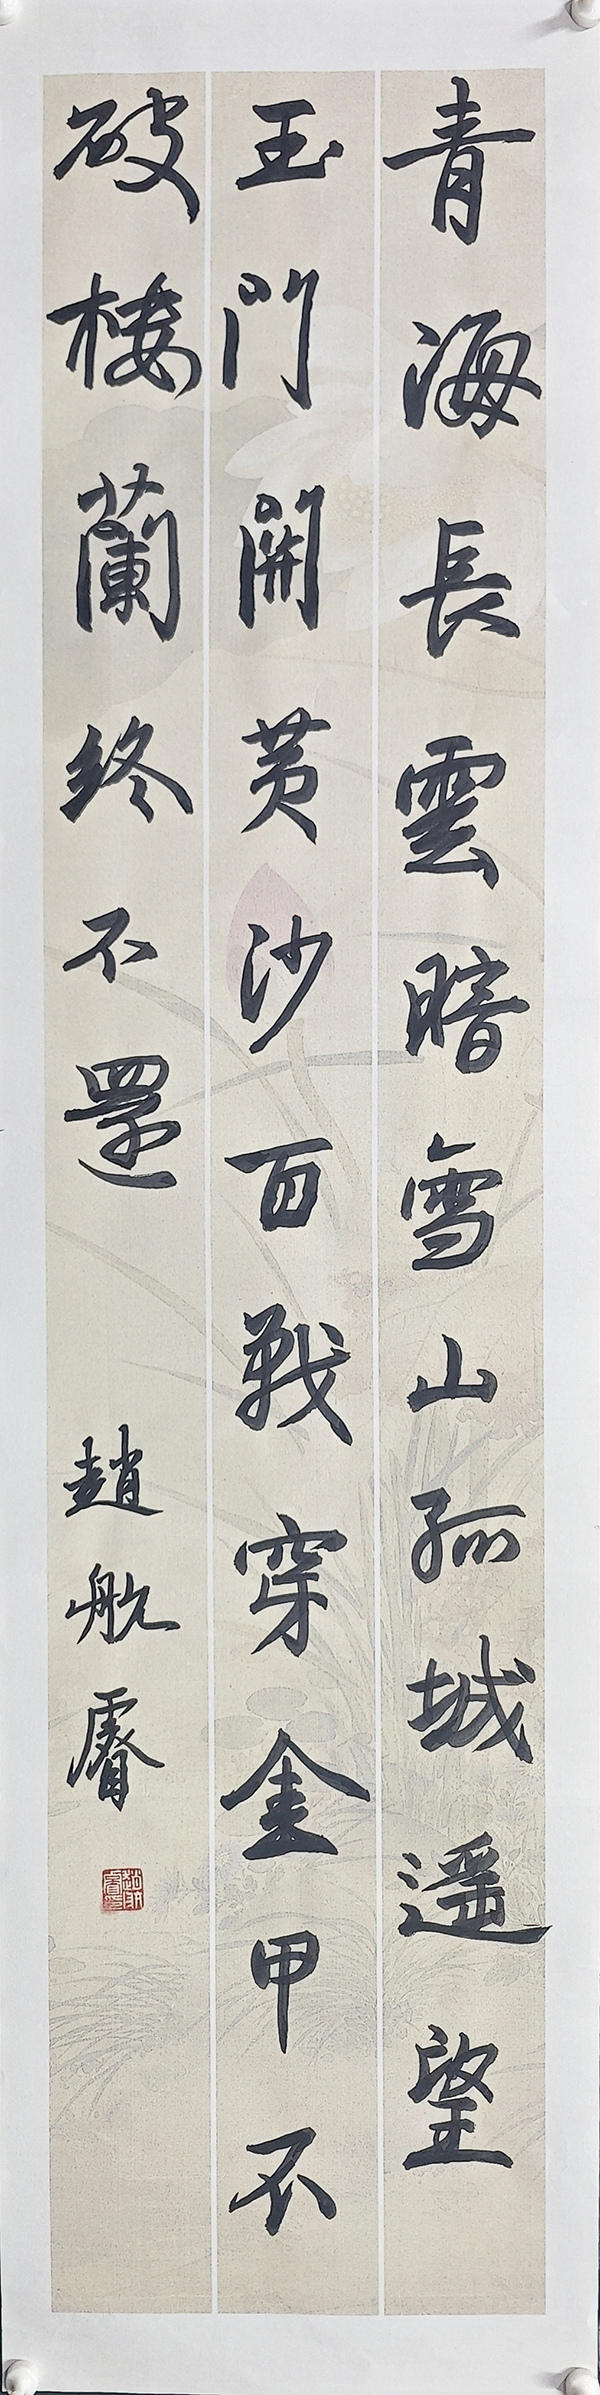 青海長雲暗雪山孤城遥望
玉門開黄沙百戰穿金甲不
破樓蘭終不還
趙航睿